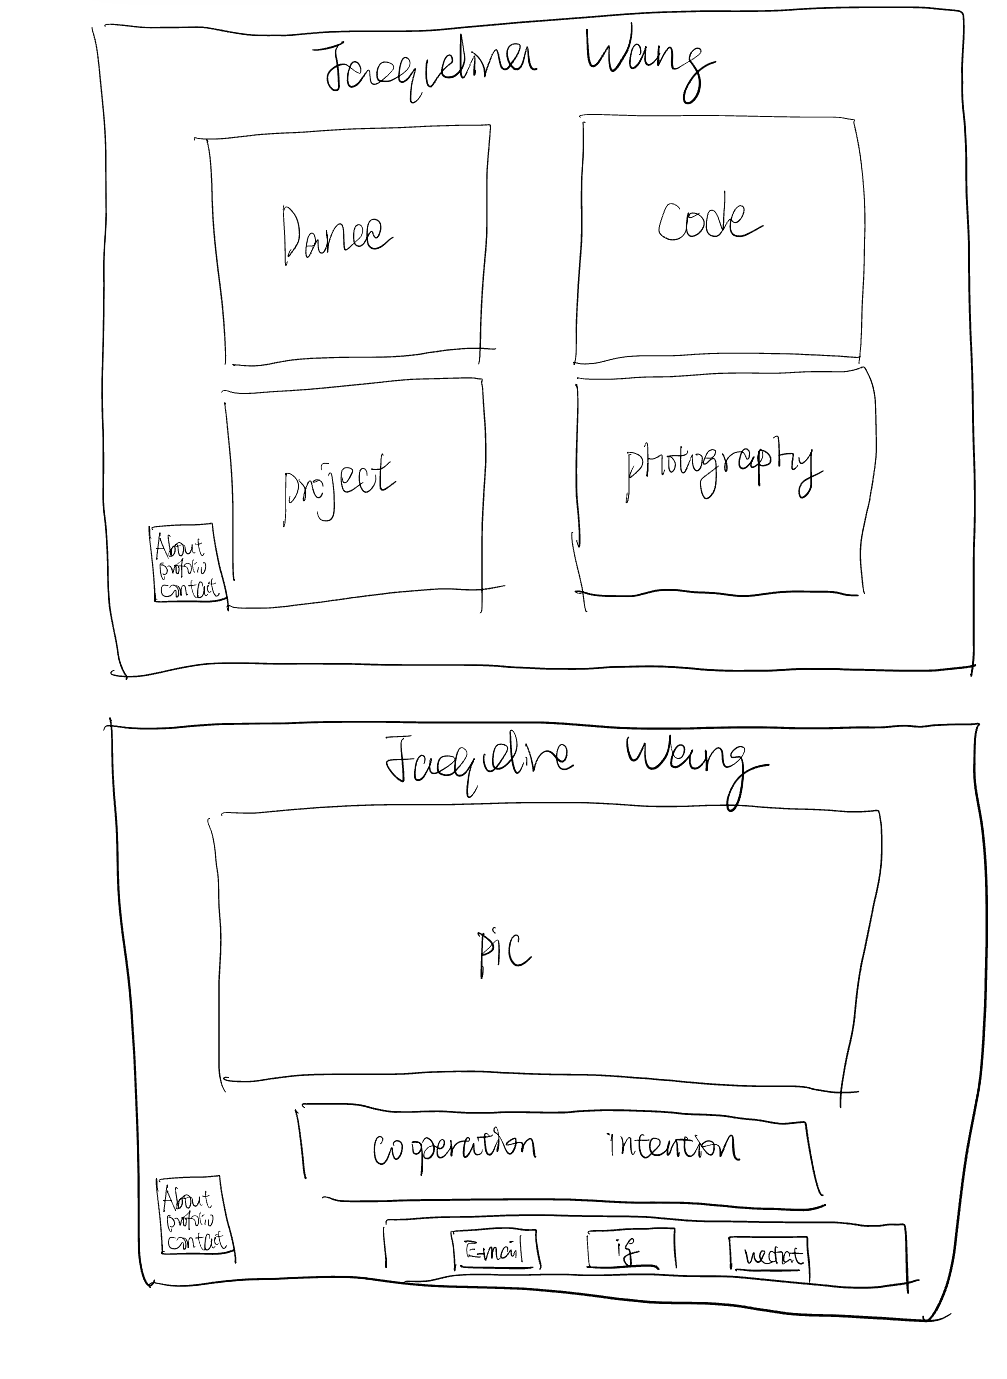 Jacqueline Wang
Dance
Code
project
photography
About
profolio
contact
Jacqueline Wang
pic
cooperation intention
About
profolio
contact
E-mail
ig
wechat